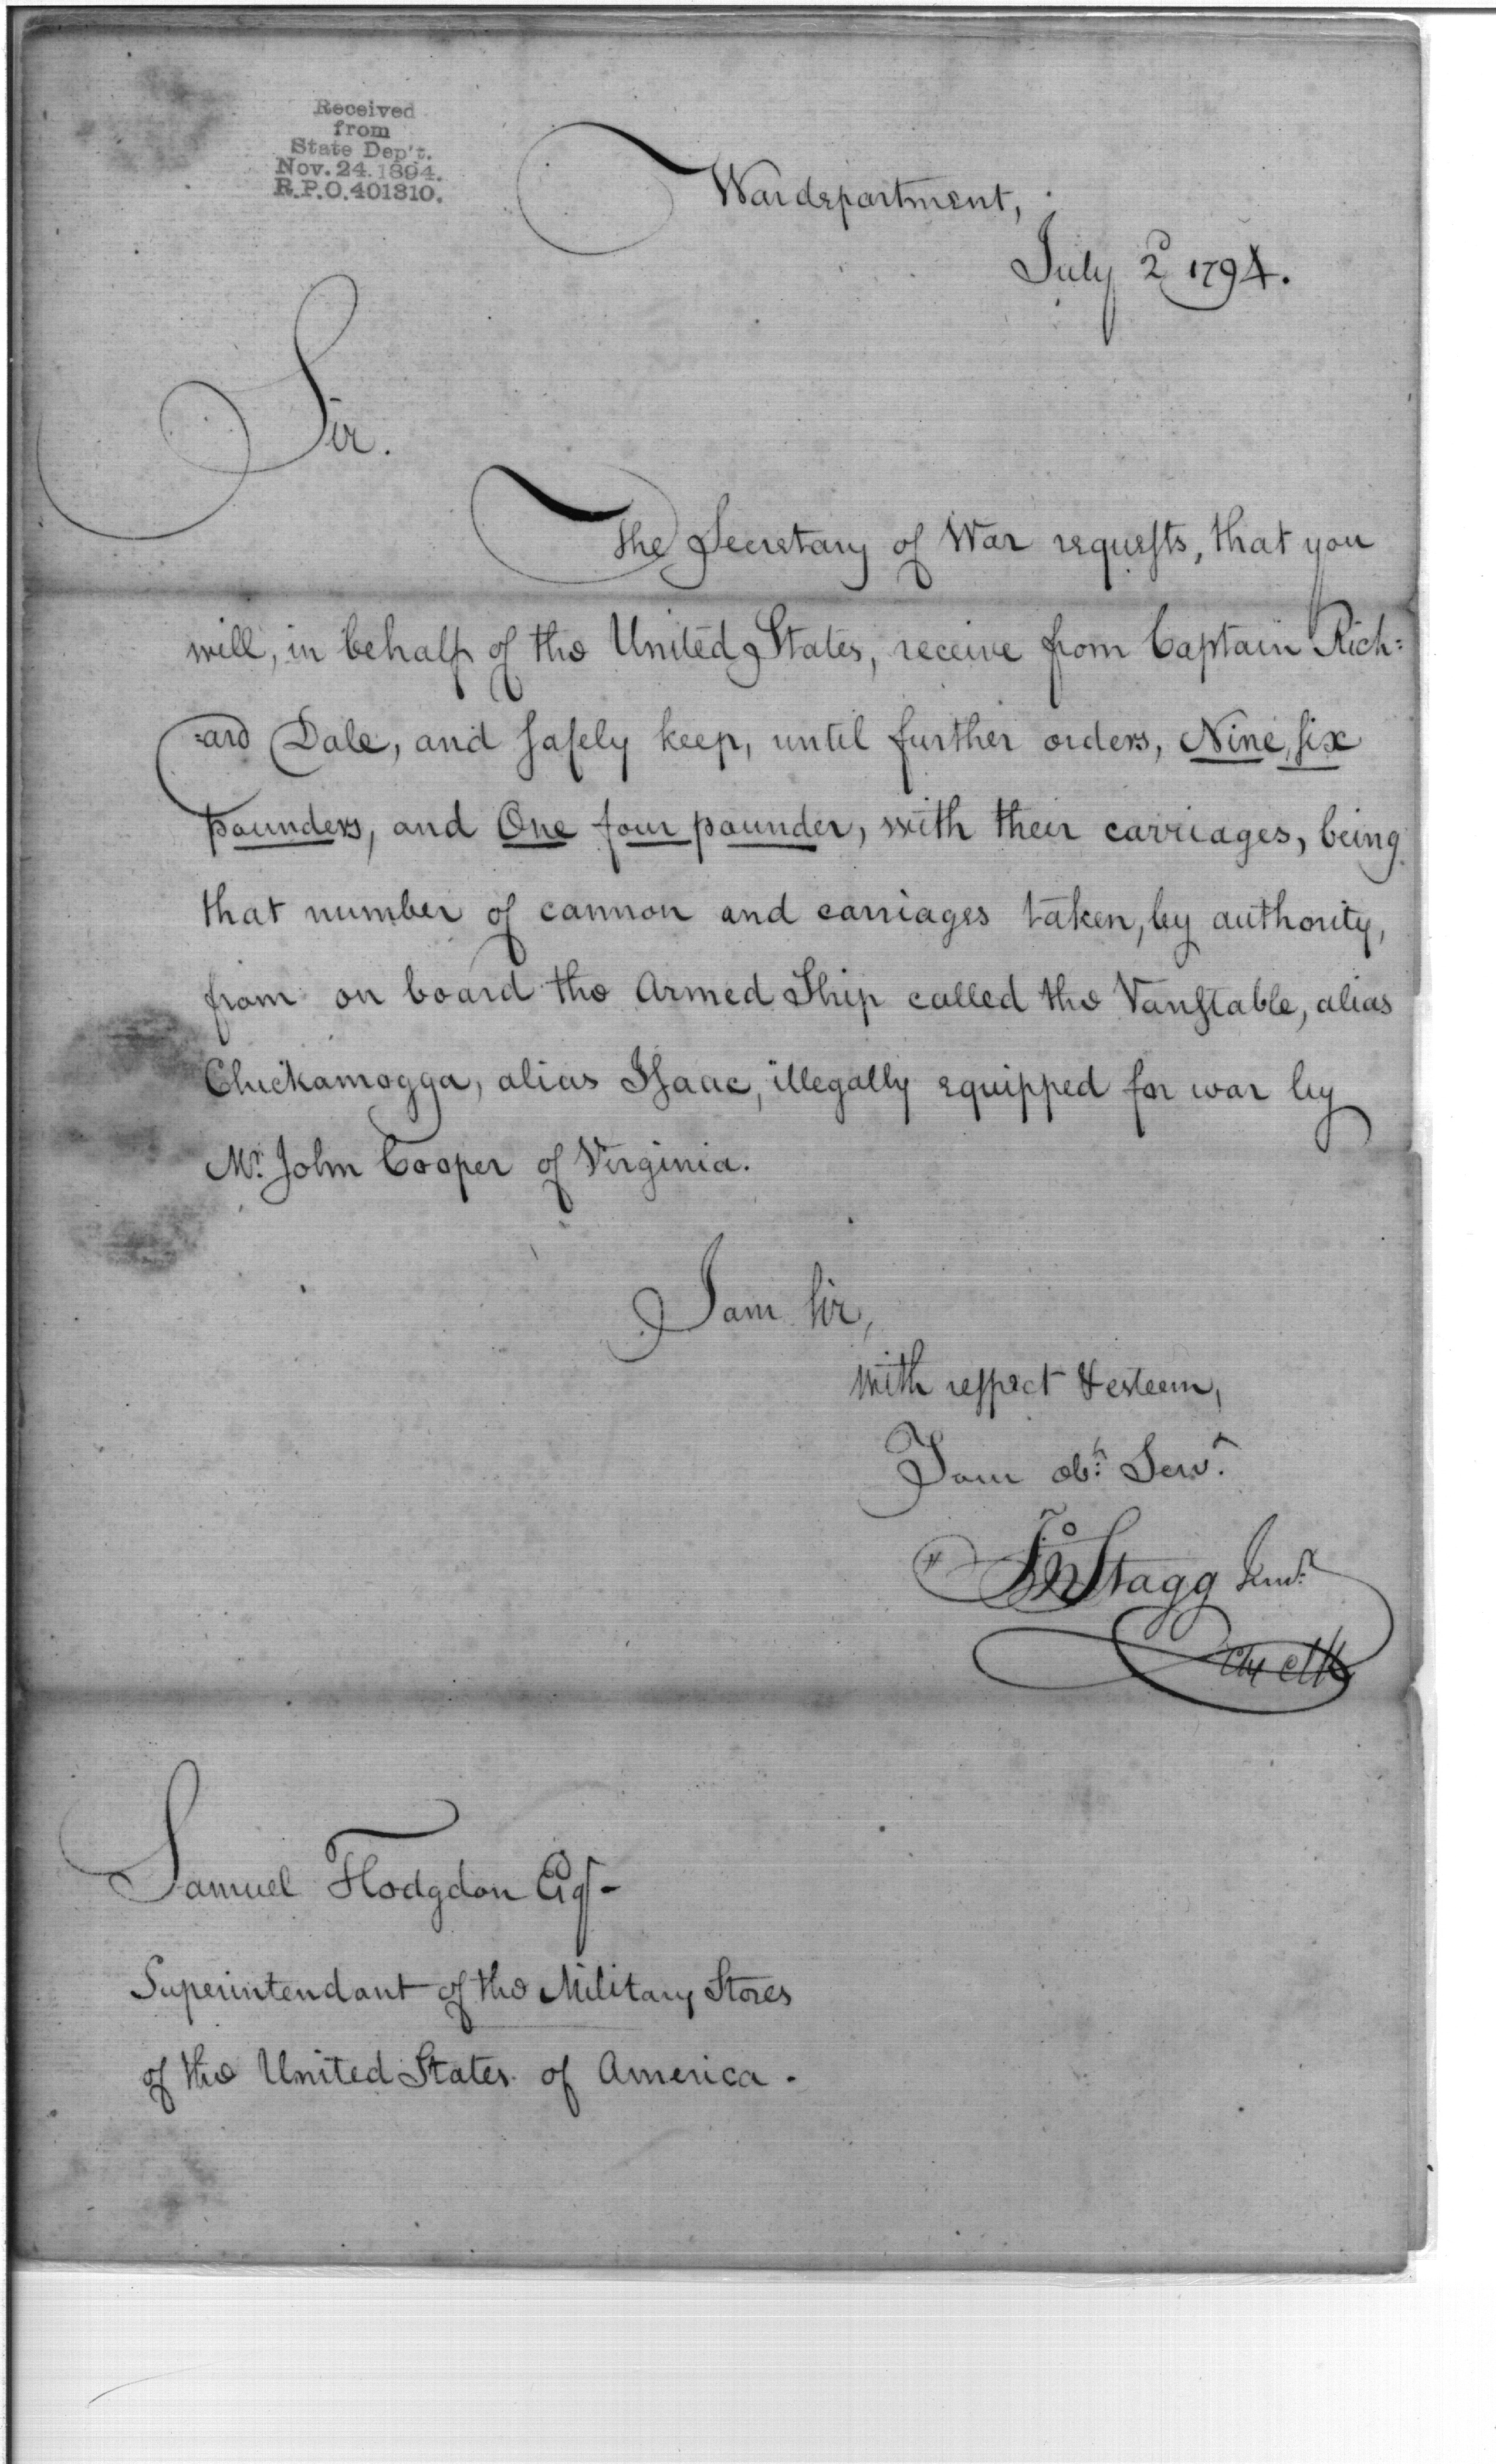 Received
from
State Dep't.
Nov. 24. 1894.
R.P.O. 401810.
War department,
July 2d 1794.
Sir.
The Secretary of War requests, that you
will, in behalf of the United States, receive from Captain Rich=
=ard Dale, and safely keep, until further orders, Nine, six
pounders, and One four pounder, with their carriages, being
that number of cannon and carriages taken, by authority,
from on board the Armed Ship called the Vanstable, alias
Chickamogga, alias Isaac, illegally equipped for war by
Mr. John Cooper of Virginia.
I am Sir,
with respect & esteem,
Your obt. Servt.
Jno Stagg Junr.
Chf Clk
Samuel Hodgdon Esqr
Superintendant of the Military Stores
of the United States of America.